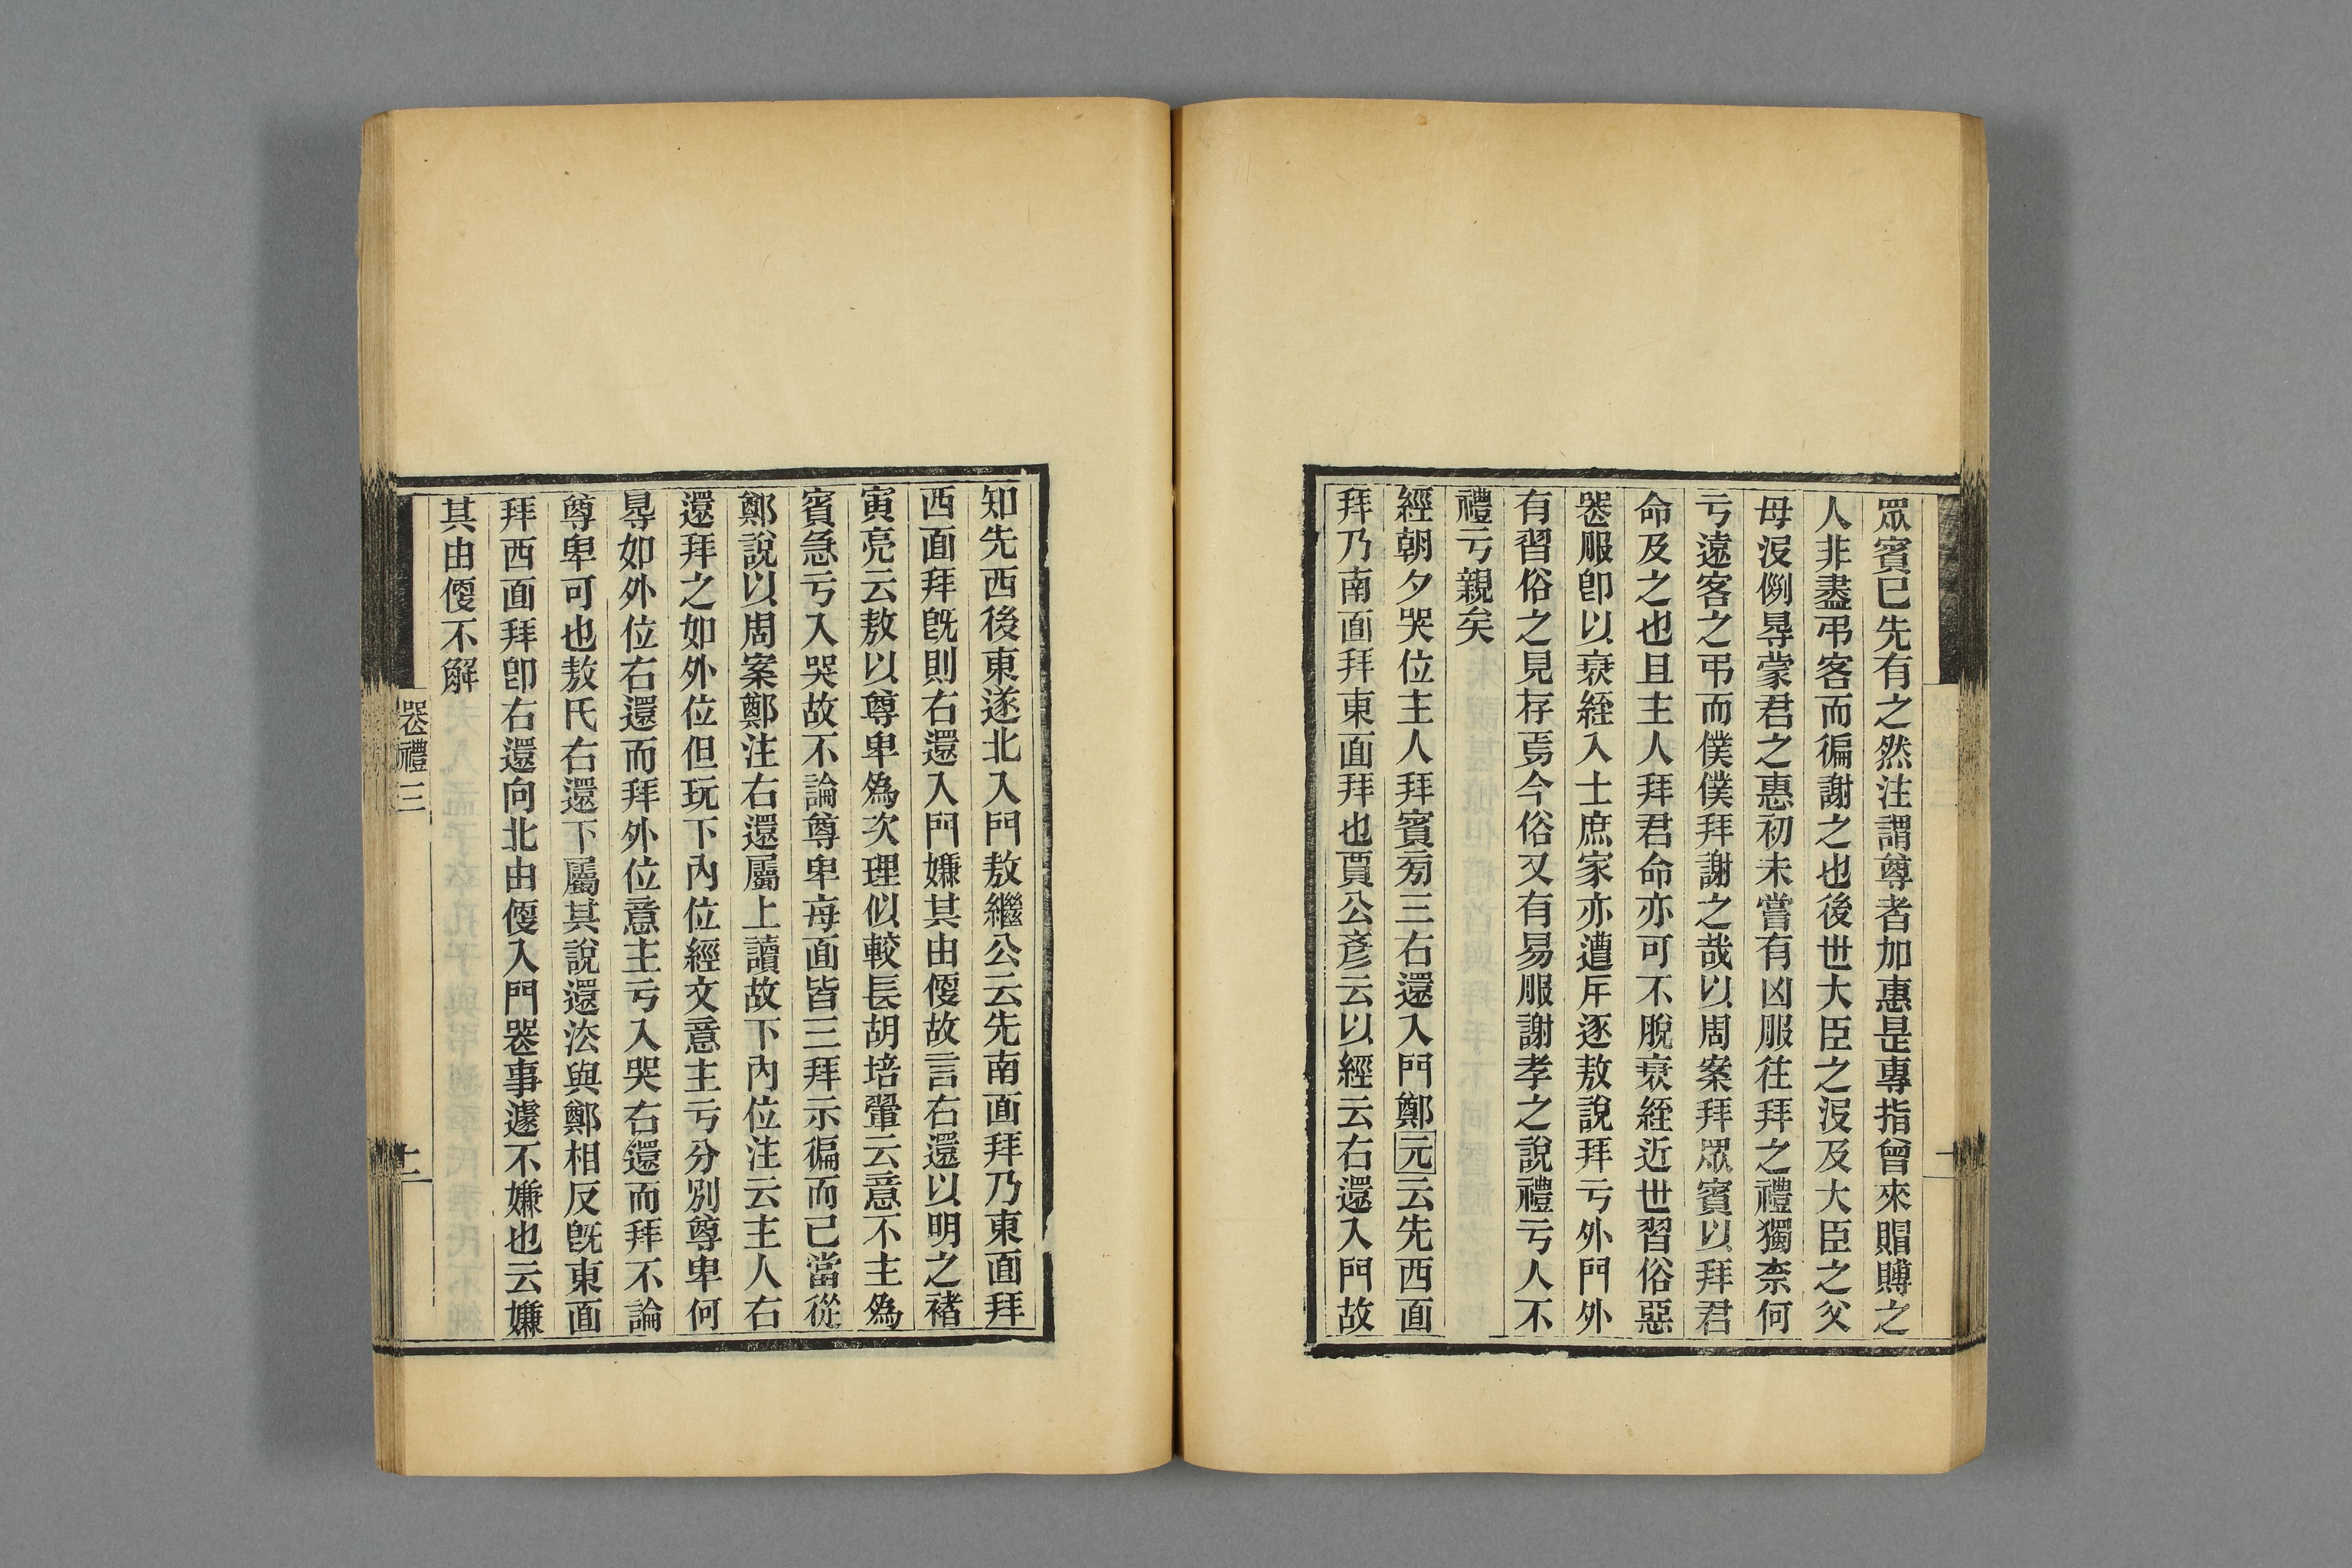 眾賓已先有之然注謂尊者加惠是專指曾來賵賻之
人非盡弔客而徧謝之也後世大臣之沒及大臣之父
母沒例㝵蒙君之惠初未嘗有凶服往拜之禮獨柰何
亏遠客之弔而僕僕拜謝之哉以周案拜眾賓以拜君
命及之也且主人拜君命亦可不脫衰絰近世習俗惡
喪服卽以衰絰入士庶家亦遭斥逐敖說拜亏外門外
有習俗之見存焉今俗又有易服謝孝之說禮亏人不
禮亏親矣
經朝夕哭位主人拜賓㫄三右還入門鄭元云先西面
拜乃南面拜東面拜也賈公彥云以經云右還入門故
知先西後東遂北入門敖繼公云先南面拜乃東面拜
西面拜旣則右還入門嫌其由便故言右還以明之褚
寅亮云敖以尊卑爲次理似較長胡培翬云意不主爲
賓急亏入哭故不論尊卑每面皆三拜示徧而已當從
鄭說以周案鄭注右還屬上讀故下內位注云主人右
還拜之如外位但玩下內位經文意主亏分別尊卑何
㝵如外位右還而拜外位意主亏入哭右還而拜不論
尊卑可也敖氏右還下屬其說還㳒與鄭相反旣東面
拜西面拜卽右還向北由便入門喪事遽不嫌也云嫌
其由便不解
喪禮三
十一